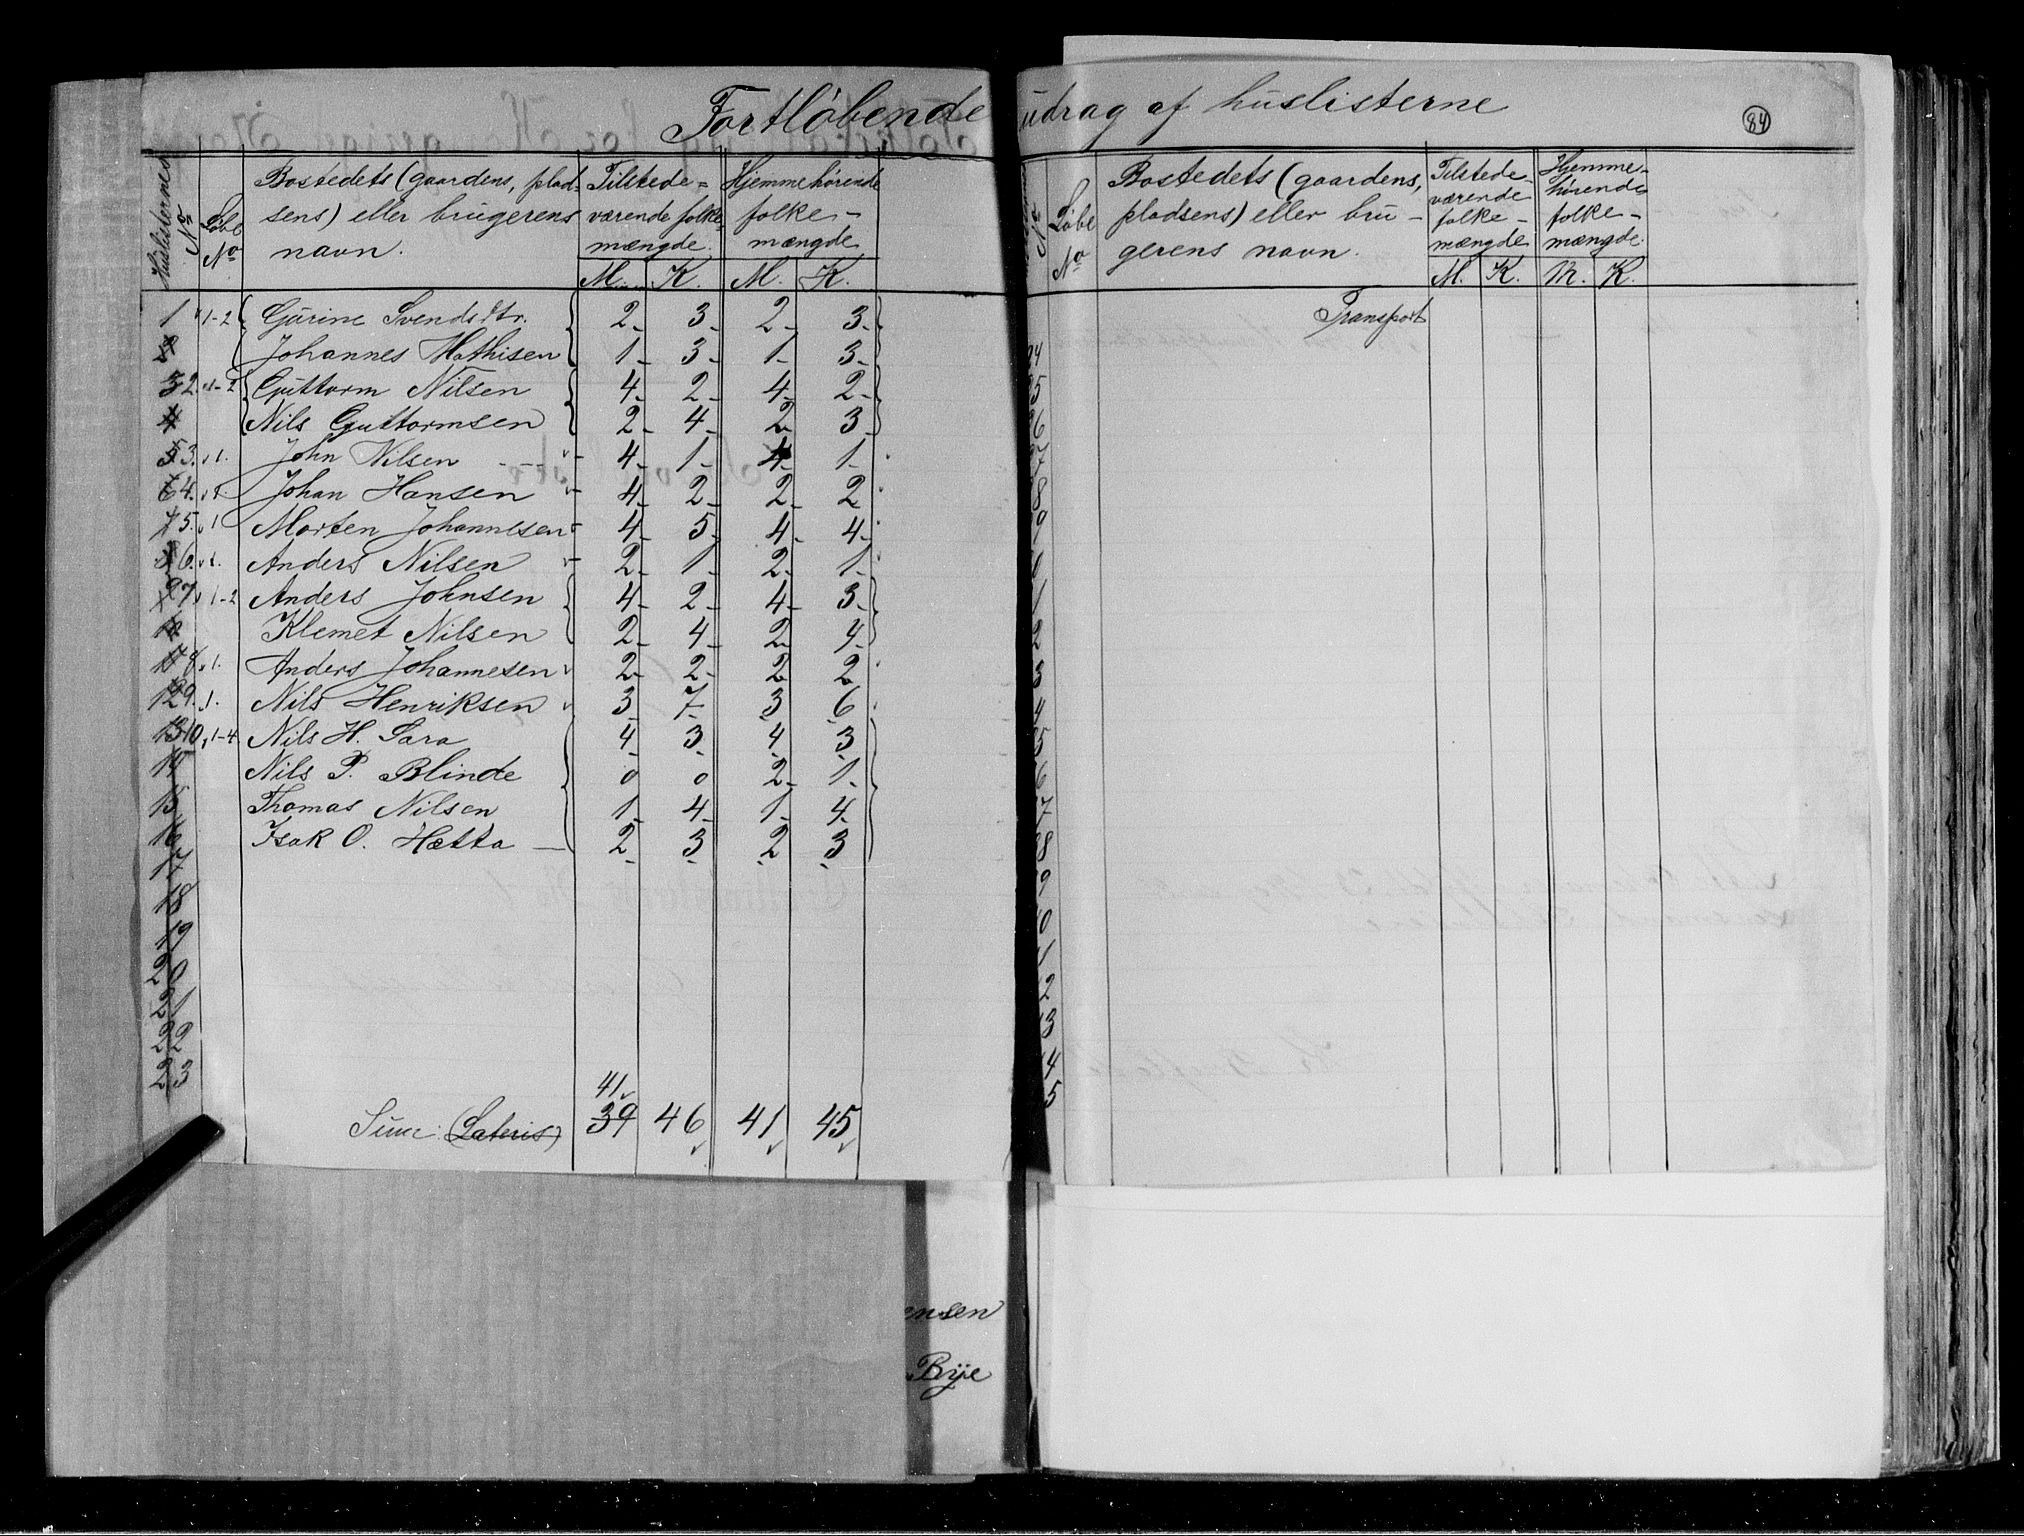 Fortløbende udrag af huslisterne
84
Huslisternes No
Løbe No
Bostedets (gaardens, plad-
sens) eller brugerens
navn.
Tilstede-
værende folke-
mængde.
Hjemmehørende
folke-
mængde
M. K. M. K.
1 1-2 Gurine Svendsdtr. 2 3 2 3
Johannes Mathisen 1 3 1 3
2. 1-2 Guttorm Nilsen 4 2 4 2
Nils Guttormsen 2 4 2 3
3. 1. John Nilsen 4 1 4 1
4. 1. Johan Hansen 4 2 2 2
5. 1 Morten Johannesen 4 5 4 4
6. 1. Anders Nilsen 2 1 2 1
7. 1-2 Anders Johnsen 4 2 4 3
Klemet Nilsen 2 4 2 4
8. 1. Anders Johannesen 2 2 2 2
9. 1. Nils Henriksen 3 7 3 6
10. 1-4 Nils H. Sara 4 3 4 3
14 Nils P. Blinde 0 0 2 1
15 Thomas Nilsen 1 4 1 4
16 Isak O. Hætta 2 3 2 3
17
18
19
20
21
22
23
41
Sum: (Lateris) 39 46 41 45
No
Løbe No
Bostedets (gaardens,
pladsens) eller bru-
gerens navn.
Tilstede-
værende
folke-
mængde
Hjemme-
hørende
folke-
mængde.
M. K. M. K.
Transport
ensen
Bye